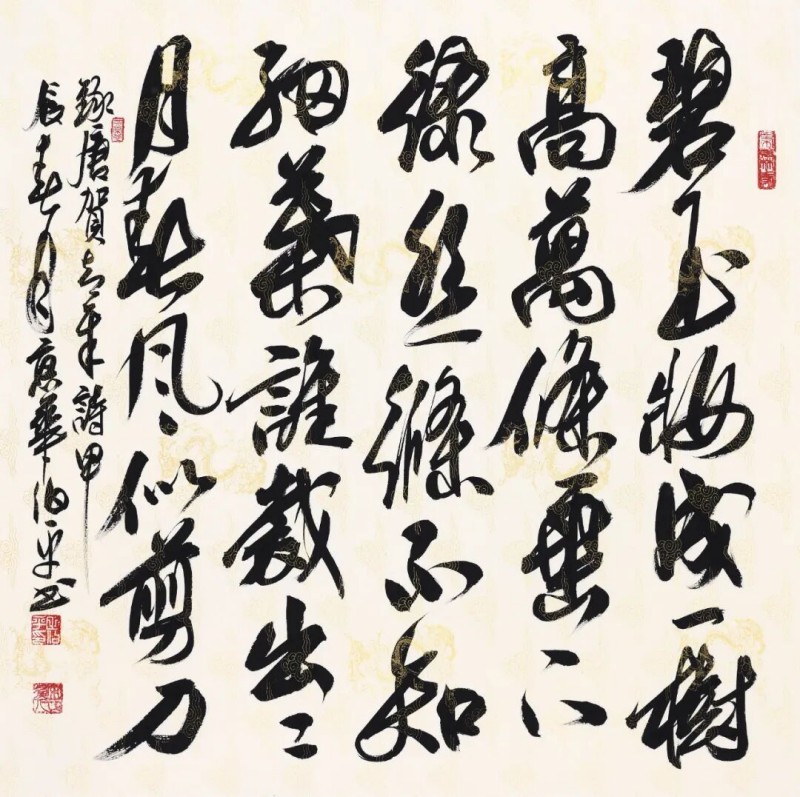 碧玉妝成一樹
高萬條垂下
綠絲縧不知
細葉誰裁出二
月春風似剪刀
錄唐賀知章詩甲
辰春月京華伯平书